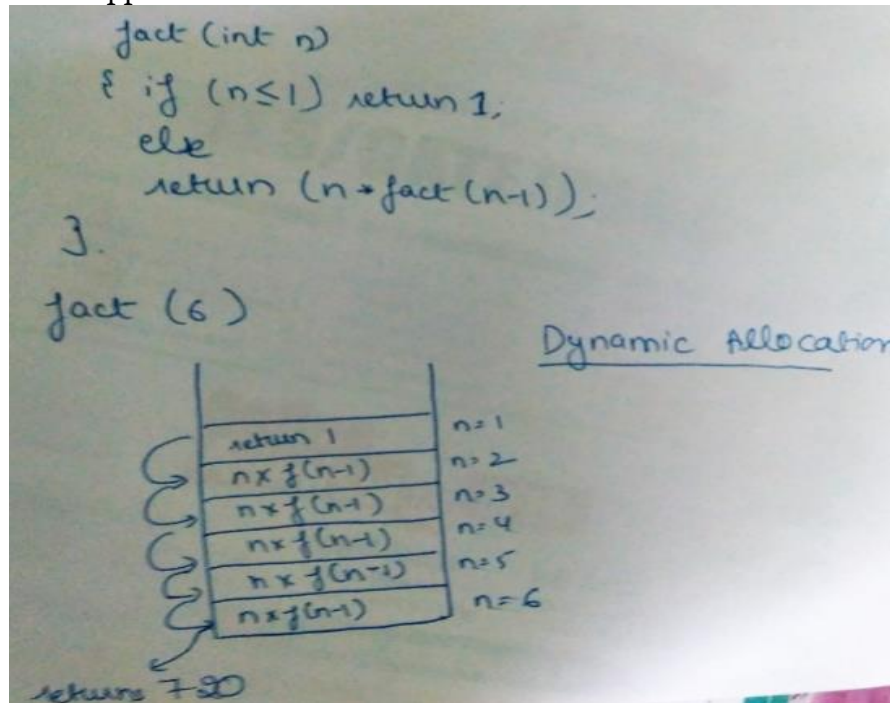 fact (int n)
{ if (n≤1) return 1;
else
return (n * fact (n-1));
}.
fact (6)
Dynamic Allocation
return 1 n=1
n x f(n-1) n=2
n x f(n-1) n=3
n x f(n-1) n=4
n x f(n-1) n=5
n x f(n-1) n=6
returns 720